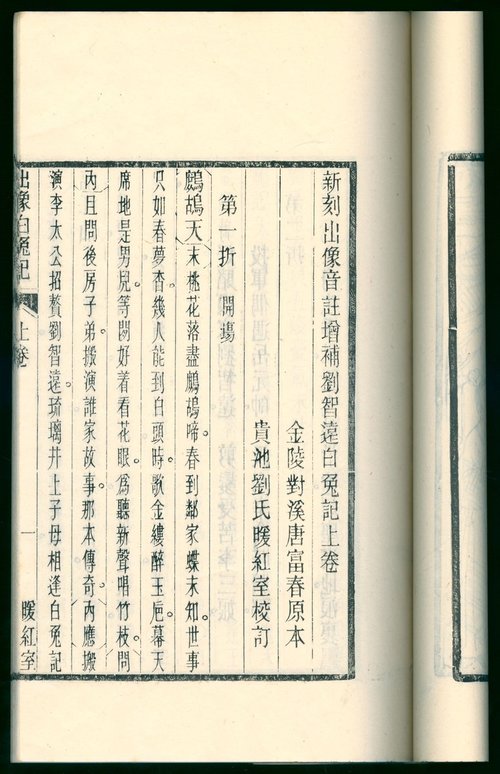 新刻出像音註增補劉智遠白兔記上卷
金陵對溪唐富春原本
貴池劉氏暖紅室校訂
第一折　開場
鷓鴣天末桃花落盡鷓鴣啼。春到鄰家蝶未知。世事
只如春夢杳。幾人能到白頭時。歌金縷。醉玉卮。幕天
席地是男兒。等閒好着看花眼。爲聽新聲唱竹枝。問
內且問後房子弟。搬演誰家故事。那本傳奇。內應搬
演李太公招贅劉智遠。琉璃井上子母相逢白兔記
出像白兔記　上卷　一　暖紅室